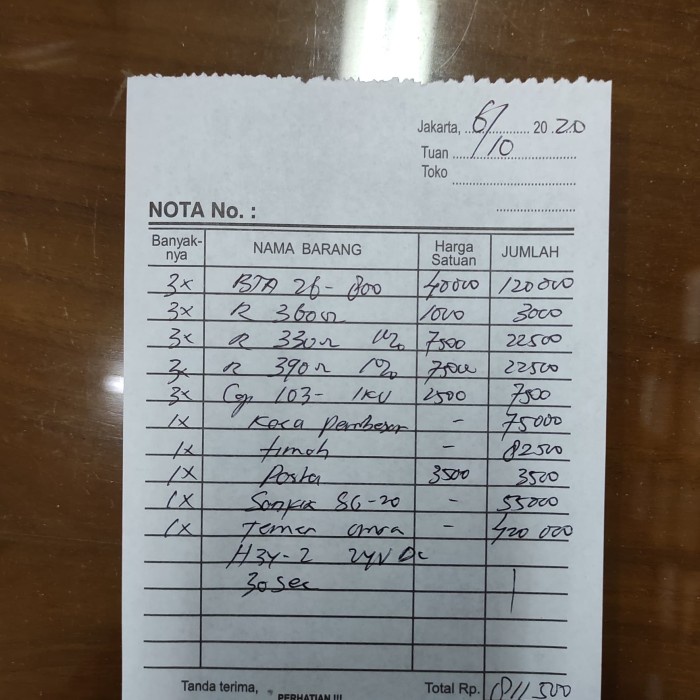 Jakarta, 6/10 20 20
Tuan
Toko
NOTA No. :
Banyak-nya NAMA BARANG Harga Satuan JUMLAH
3x BTA 26-800 40000 120000
3x R 360Ω 1000 3000
3x R 330Ω 7500 22500
3x R 390Ω 7500 22500
3x 103- 1KV 2500 7500
1x Kaca pembesar - 75000
1x timah - 82500
1x Pasta 3500 3500
1x SG-20 - 55000
1x Timer - 420 000
H3Y-2 24V Dc
30 Sec
Tanda terima, Total Rp. 811 500
PERHATIAN !!!